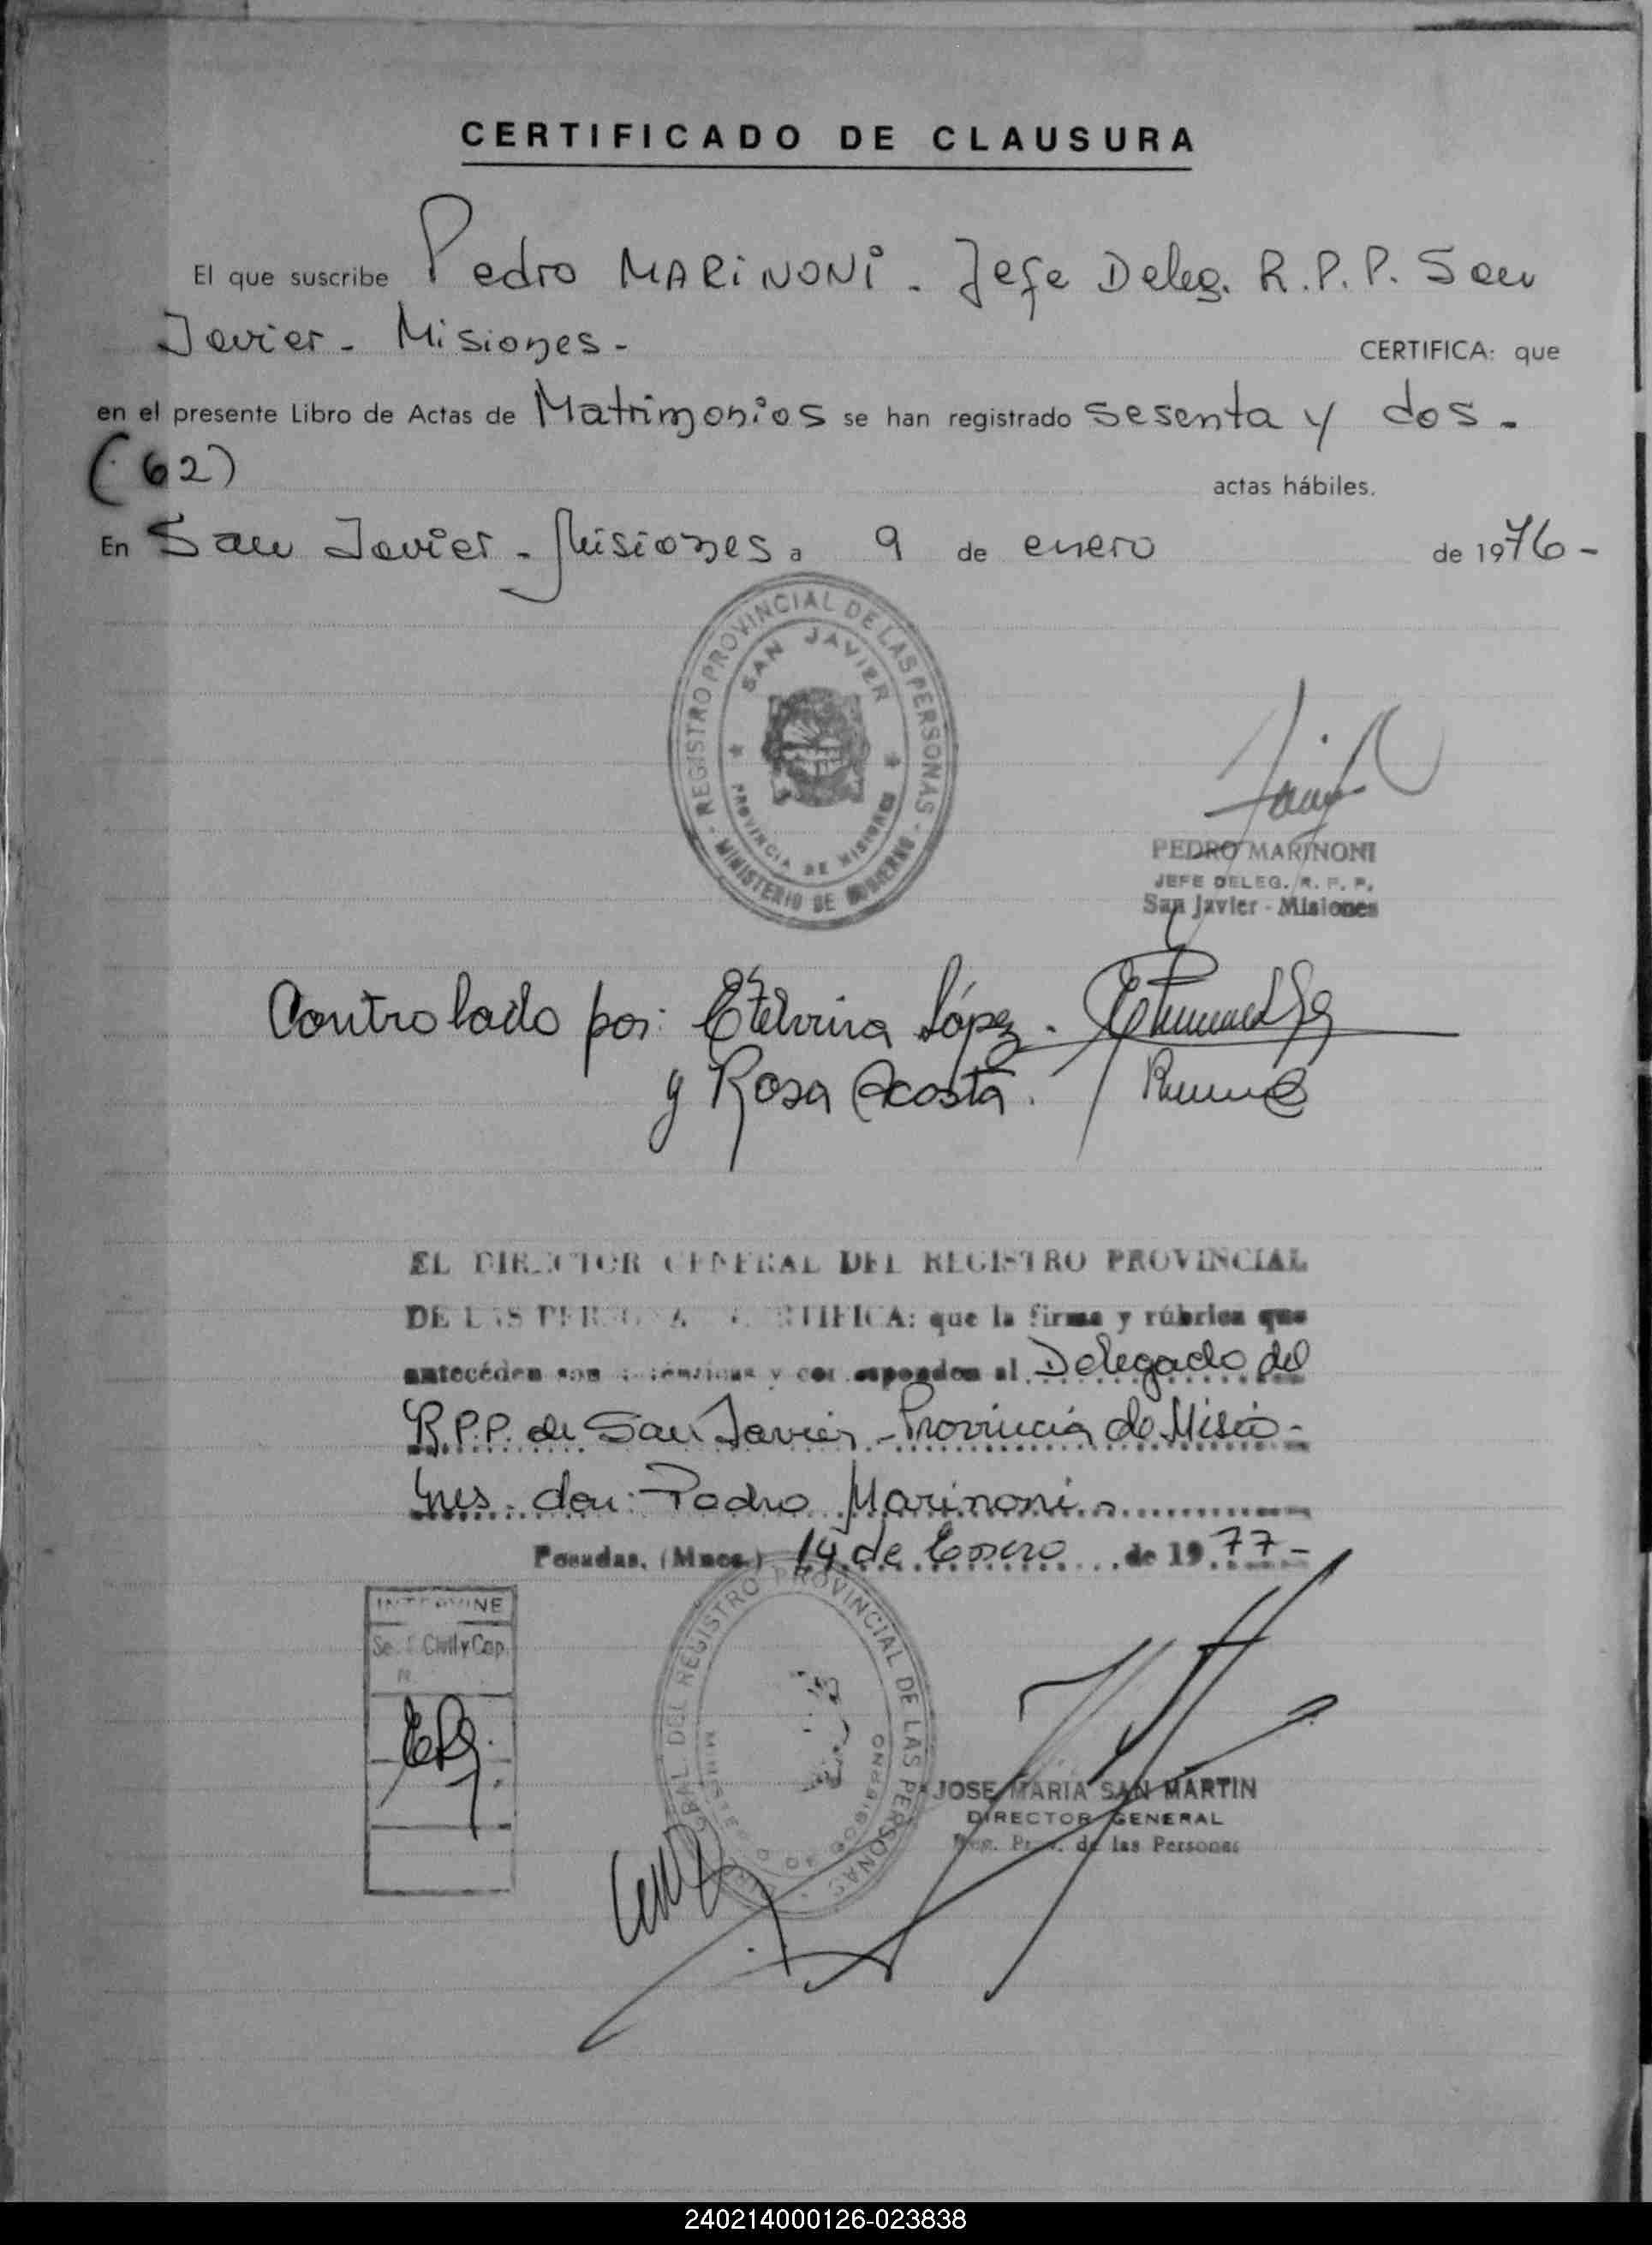 CERTIFICADO DE CLAUSURA
El que suscribe Pedro MARINONI - Jefe Deleg. R.P.P. San
Javier - Misiones - CERTIFICA: que
en el presente Libro de Actas de Matrimonios se han registrado sesenta y dos -
(62) actas hábiles.
En San Javier - Misiones a 9 de enero de 1976 -
- REGISTRO PROVINCIAL DE LAS PERSONAS -
MINISTERIO DE GOBIERNO
SAN JAVIER
PROVINCIA DE MISIONES
PEDRO MARINONI
JEFE DELEG. R. P. P.
San Javier - Misiones
Controlado por: Etelvina López.
y Rosa Acosta.
EL DIRECTOR GENERAL DEL REGISTRO PROVINCIAL
DE LAS PERSONAS CERTIFICA: que la firma y rúbrica que
antecéden son auténticas y corresponden al Delegado del
R.P.P. de San Javier - Provincia de Misio-
nes. don: Pedro Marinoni.
Posadas, (Mnes.) 14 de Enero de 1977 -
INTERVINE
Civil y Cap.
GRAL. DEL REGISTRO PROVINCIAL DE LAS PERSONAS
JOSE MARIA SAN MARTIN
DIRECTOR GENERAL
Reg. Prov. de las Personas
240214000126-023838